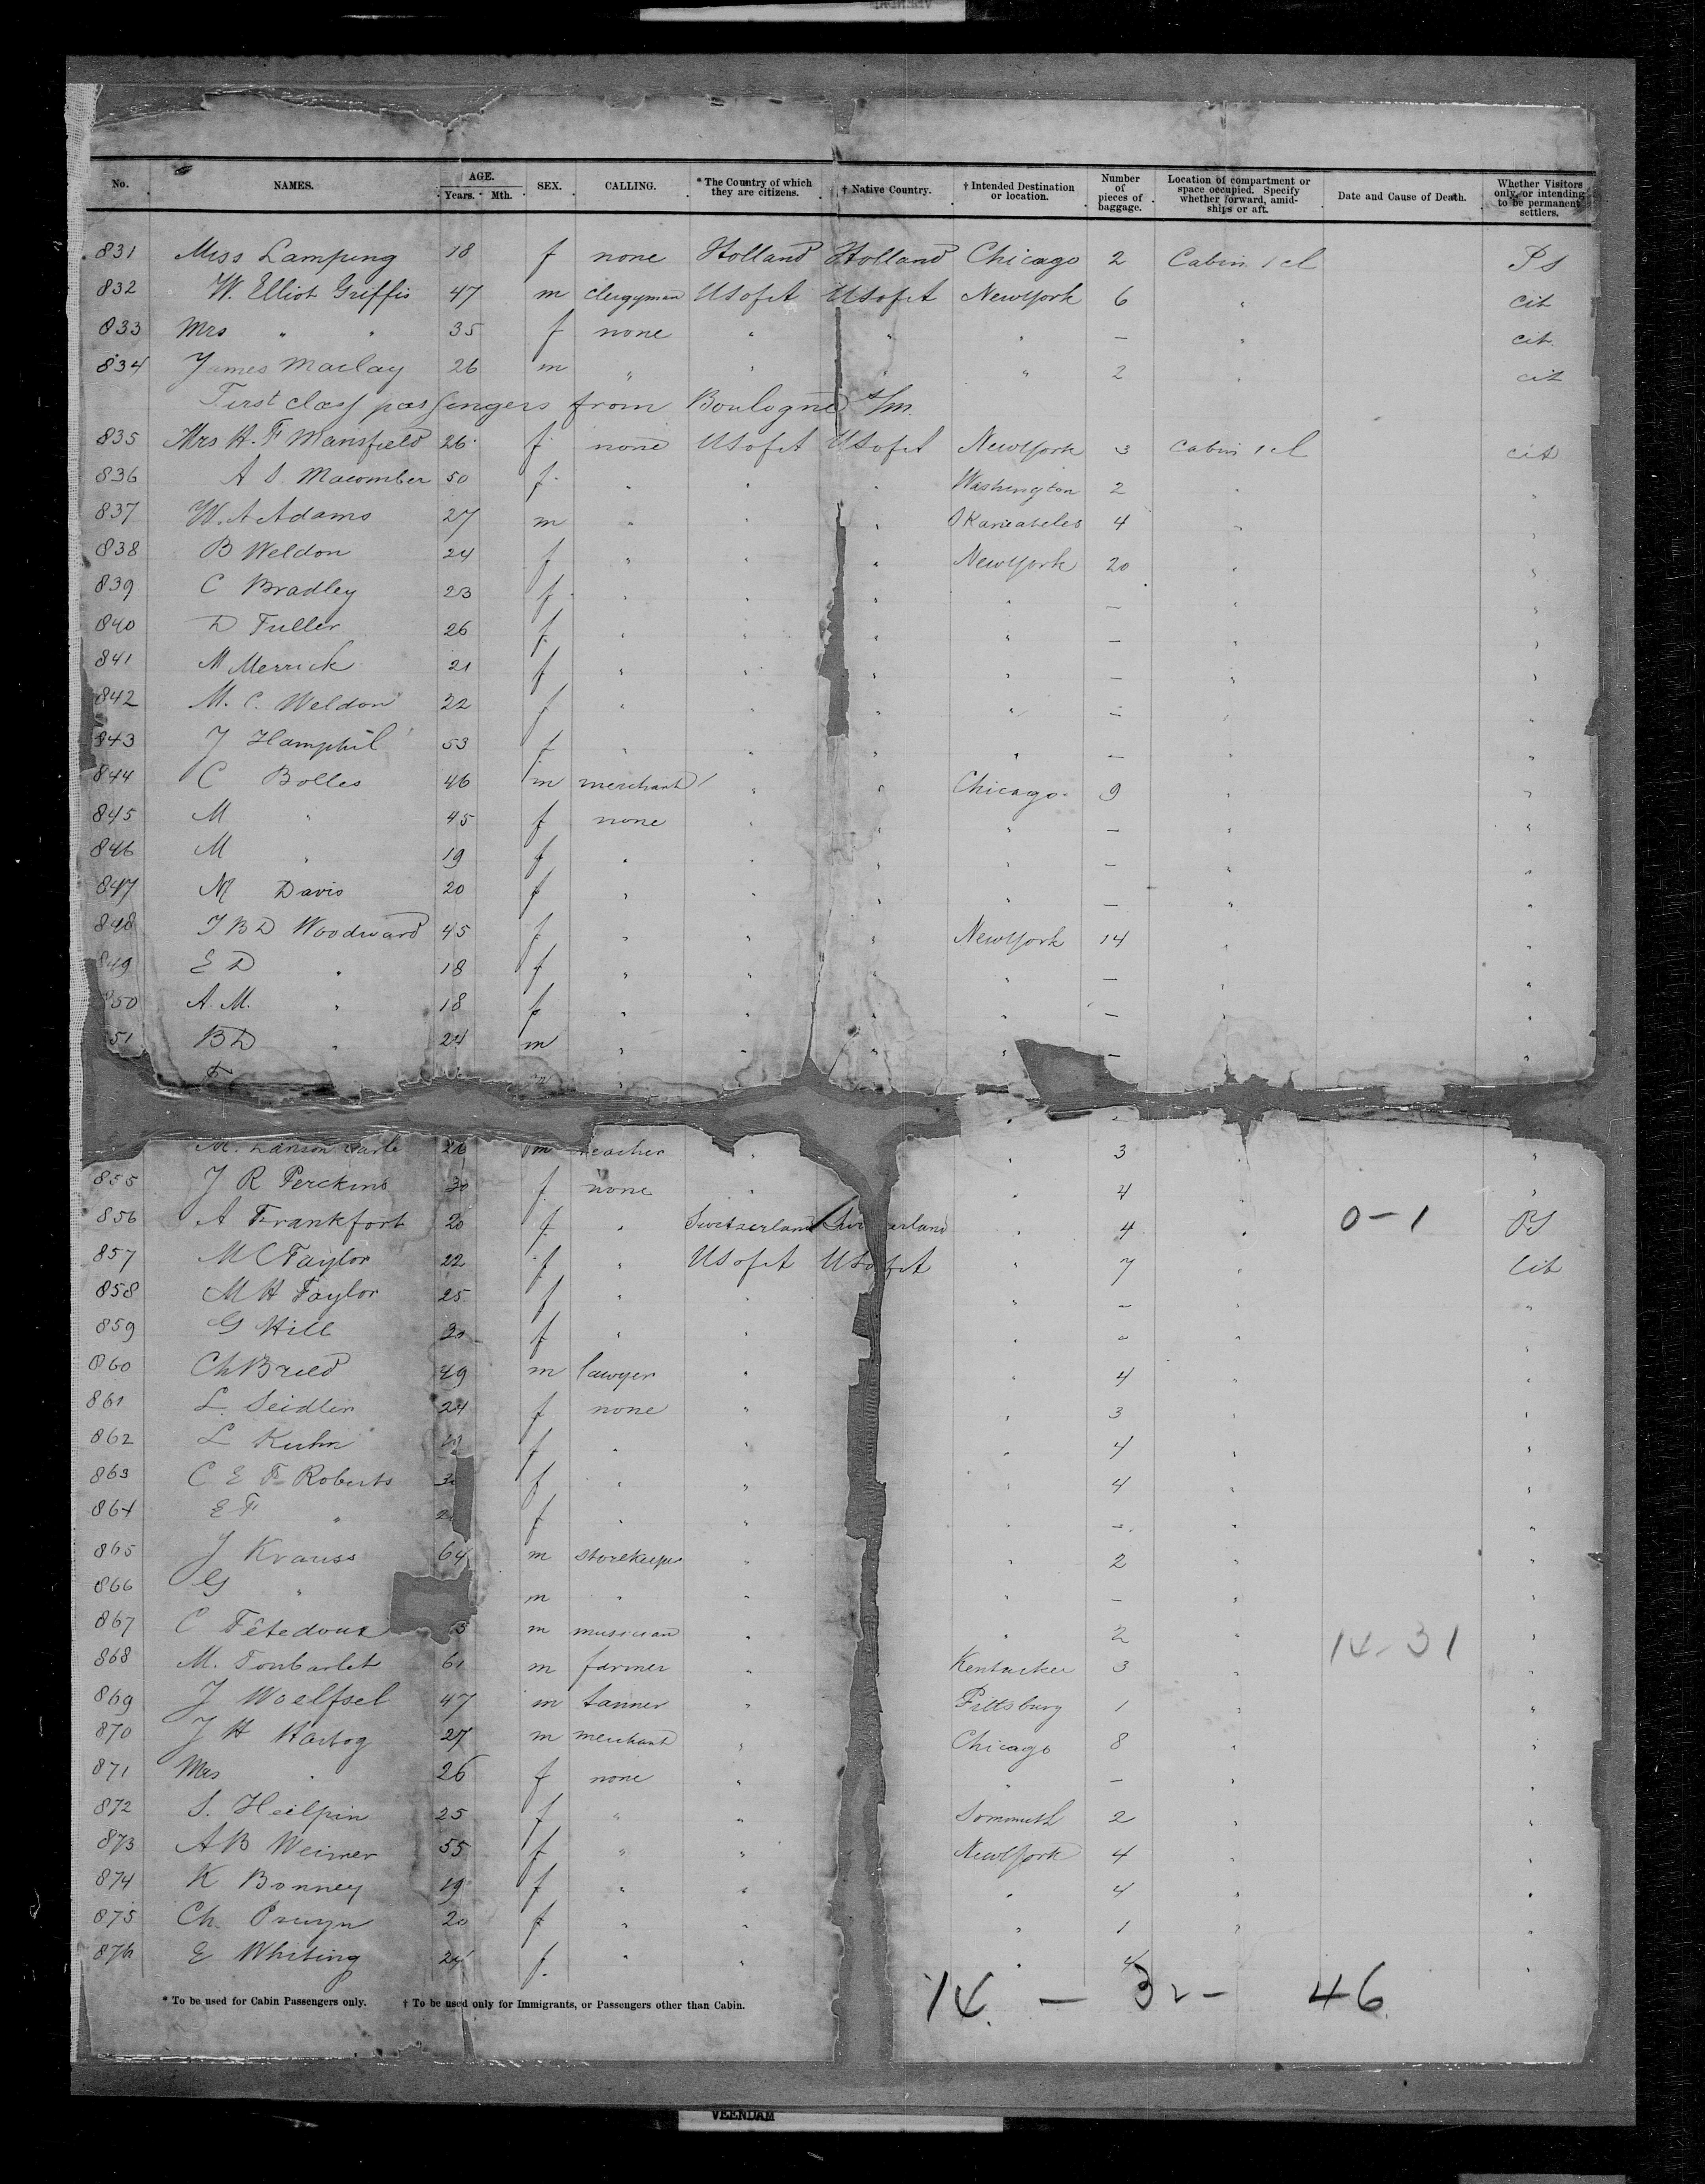 No. NAMES. AGE. Years. Mth. SEX. CALLING. * The Country of which they are citizens. † Native Country. † Intended Destination or location. Number of pieces of baggage. Location of compartment or space occupied. Specify whether forward, amidships or aft. Date and Cause of Death. Whether Visitors only, or intending to be permanent settlers.
831 Miss Lamping 18 f none Holland Holland Chicago 2 Cabin 1 cl PS
832 W. Elliot Griffis 47 m clergyman USofA USofA NewYork 6 " cit
833 Mrs " " 35 f none " " " — " cit
834 James Maclay 26 m " " " " 2 " cit
First class passengers from Boulogne s/m.
835 Mrs H. F Mansfield 26 f none USofA USofA NewYork 3 Cabin 1 cl cit
836 A S. Macomber 50 f " " " Washington 2 " "
837 W. A Adams 27 m " " " Skaneateles 4 " "
838 B Weldon 24 f " " " NewYork 20 " "
839 C Bradley 23 f " " " " — " "
840 D Fuller 26 f " " " " — " "
841 M Merrick 21 f " " " " — " "
842 M. C. Weldon 22 f " " " " — " "
843 J Hamphil 53 f " " " " — " "
844 C Bolles 46 m merchant " " Chicago 9 " "
845 M " 45 f none " " " — " "
846 M " 19 f " " " " — " "
847 M Davis 20 f " " " " — " "
848 J B D Woodward 45 f " " " NewYork 14 " "
849 E D " 18 f " " " " — " "
850 A. M. " 18 f " " " " — " "
51 B D " 24 m " " " " — "
"
M. 26 m teacher " " 3 " "
855 J R Perckins 30 f none " " 4 " "
856 A Frankfort 20 f " Switzerland Switzerland " 4 " 0-1 PS
857 M C Taylor 22 f " USofA USofA " 7 " Cit
858 M H Taylor 25 f " " " — " "
859 G Hill 30 f " " " — " "
860 Ch 49 m lawyer " " 4 " "
861 L. Seidler 24 f none " " 3 " "
862 L Kuhn f " " " 4 " "
863 C E F Roberts f " " " 4 " "
864 E F " f " " " — " "
865 J Krauss 64 m storekeeper " " 2 " "
866 G " m " " " — " "
867 C Fêtedoux m musician " " 2 " 14-31 "
868 M. 61 m farmer " Kentucker 3 " "
869 J Woelfsel 47 m tanner " Pittsburg 1 " "
870 J H Hartog 27 m merchant " Chicago 8 " "
871 Mrs " 26 f none " " — " "
872 S. Heilpin 25 f " " 2 " "
873 A B Weimer 55 f " " NewYork 4 " "
874 K Bonney 19 f " " " 4 " "
875 Ch. Pruyn 20 f " " " 1 " "
876 E Whiting 24 f " " " 4 "
14 — 32 — 46
* To be used for Cabin Passengers only. † To be used only for Immigrants, or Passengers other than Cabin.
VEENDAM